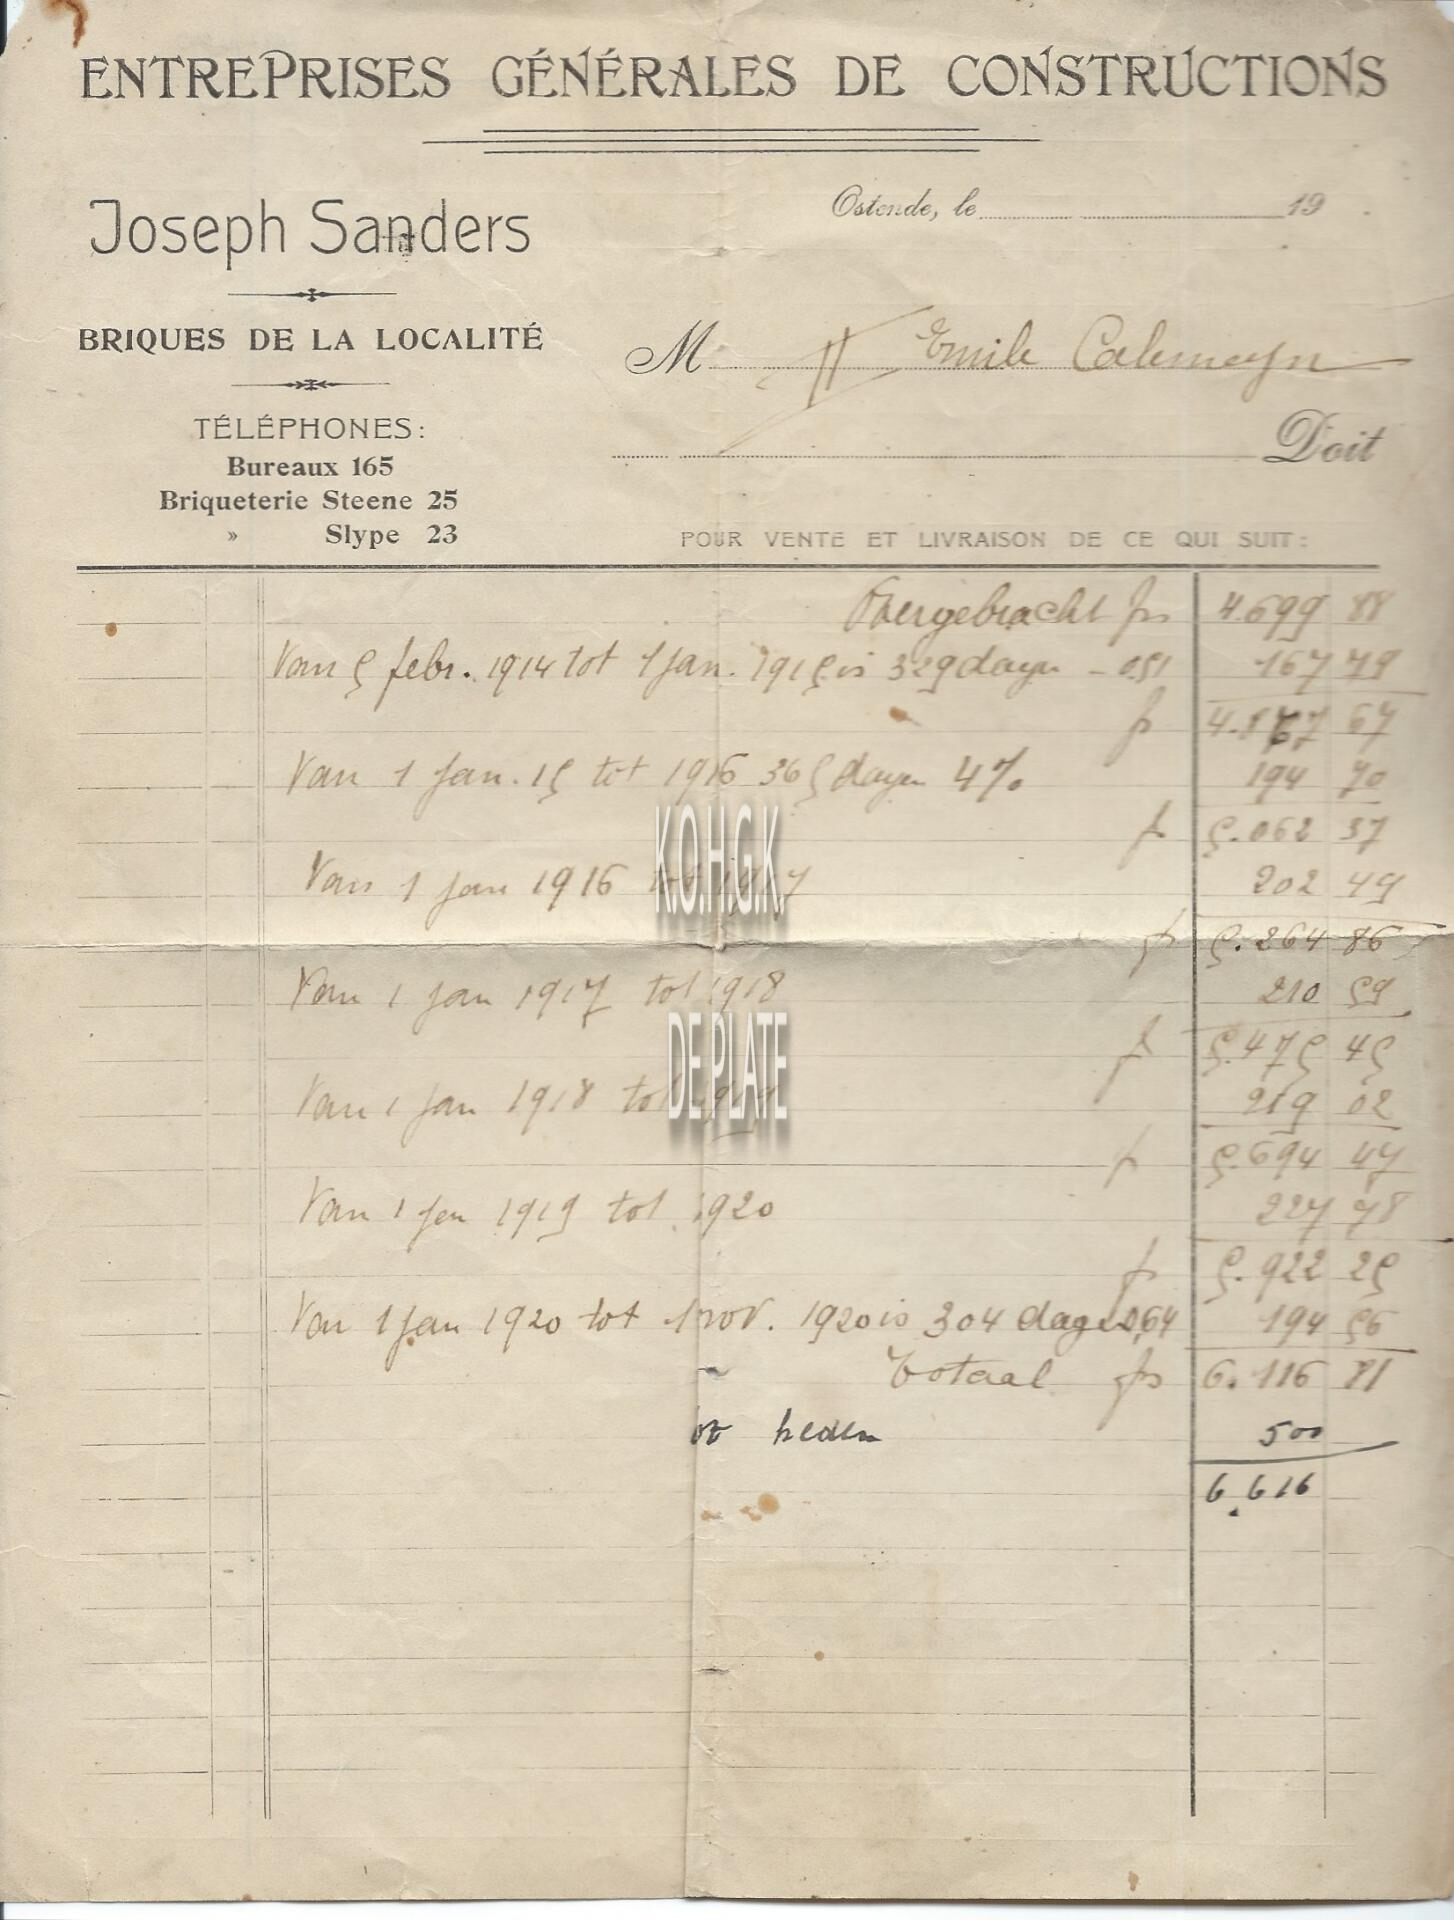 ENTREPRISES GÉNÉRALES DE CONSTRUCTIONS
Joseph Sanders
Ostende, le 19
BRIQUES DE LA LOCALITÉ
M Emile Calemeyn
TÉLÉPHONES:
Doit
Bureaux 165
Briqueterie Steene 25
» Slype 23
POUR VENTE ET LIVRAISON DE CE QUI SUIT:
Overgebracht frs 4.699 88
Van 5 febr. 1914 tot 1 jan. 1915 is 329 dagen - 0.51 167 79
fr 4.867 67
Van 1 Jan. 15 tot 1916 365 dagen 4% 194 70
fr 5.062 37
Van 1 jan 1916 tot 1917 202 49
K.O.H.G.K.
fr 5.264 86
Van 1 jan 1917 tot 1918 210 59
DE PLATE
fr 5.475 45
Van 1 jan 1918 tot 1919 219 02
fr 5.694 47
Van 1 jan 1919 tot 1920 227 78
fr 5.922 25
Van 1 jan 1920 tot 1 nov. 1920 is 304 dagen 0,64 194 56
Totaal frs 6.116 81
tot heden 500
6.616